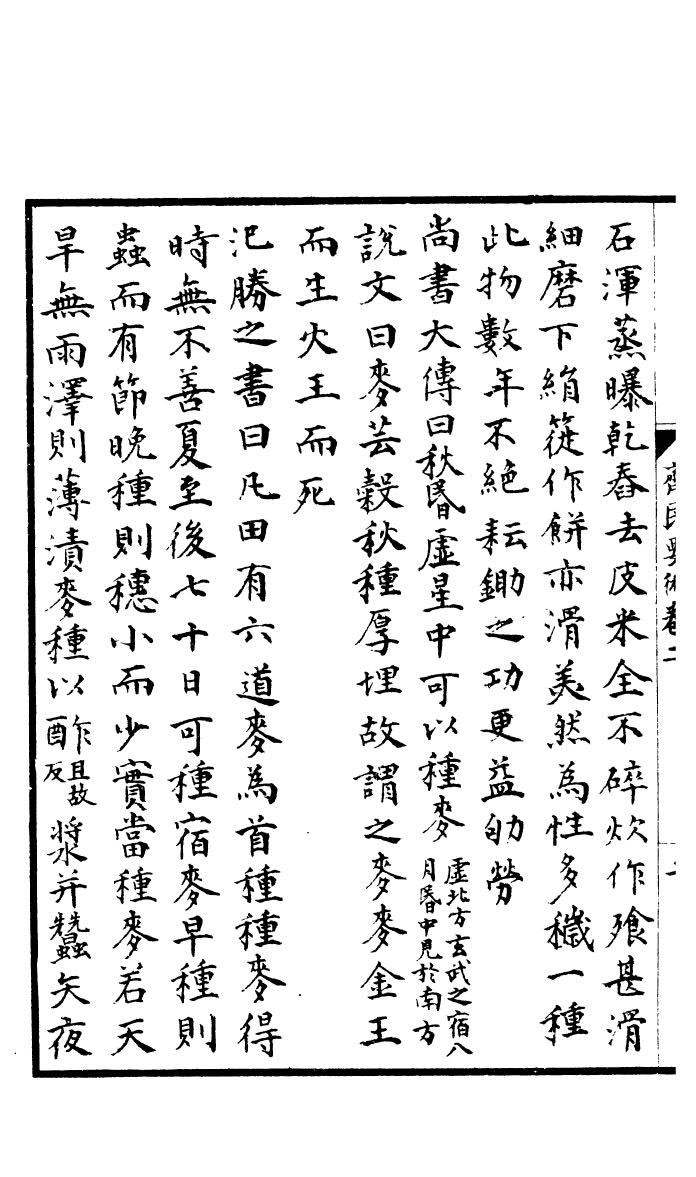 石渾蒸曝乾舂去皮米全不碎炊作飱甚滑
細磨下絹簁作餅亦滑美然為性多穢一種
此物數年不絕耘鋤之功更益劬勞
尚書大傳曰秋昏虛星中可以種麥虛北方玄武之宿八月昏中見於南方
說文曰麥芸穀秋種厚埋故謂之麥麥金王
而生火王而死
氾勝之書曰凡田有六道麥為首種種麥得
時無不善夏至後七十日可種宿麥早種則
蟲而有節晚種則穗小而少實當種麥若天
旱無雨澤則薄漬麥種以酢且故反漿并蠶矢夜
齊民要術卷二